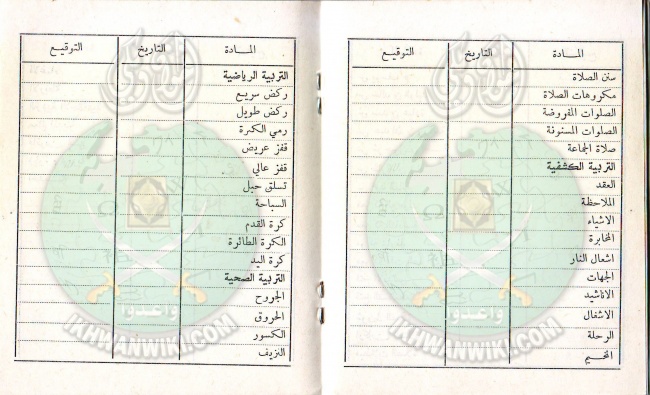 المادة التاريخ التوقيع
سنن الصلاة
مكروهات الصلاة
الصلوات المفروضة
الصلوات المسنونة
صلاة الجماعة
التربية الكشفية
العقد
الملاحظة
الاشياء
المخابرة
اشعال النار
الجهات
الأناشيد
الاشغال
الرحلة
التخييم
وأعدوا
IKHWANWIKI.COM
المادة التاريخ التوقيع
التربية الرياضية
ركض سريع
ركض طويل
رمي الكرة
قفز عريض
قفز عالي
تسلق حبل
السباحة
كرة القدم
الكرة الطائرة
كرة اليد
التربية الصحية
الجروح
الحروق
الكسور
النزيف
وأعدوا
IKHWANWIKI.COM